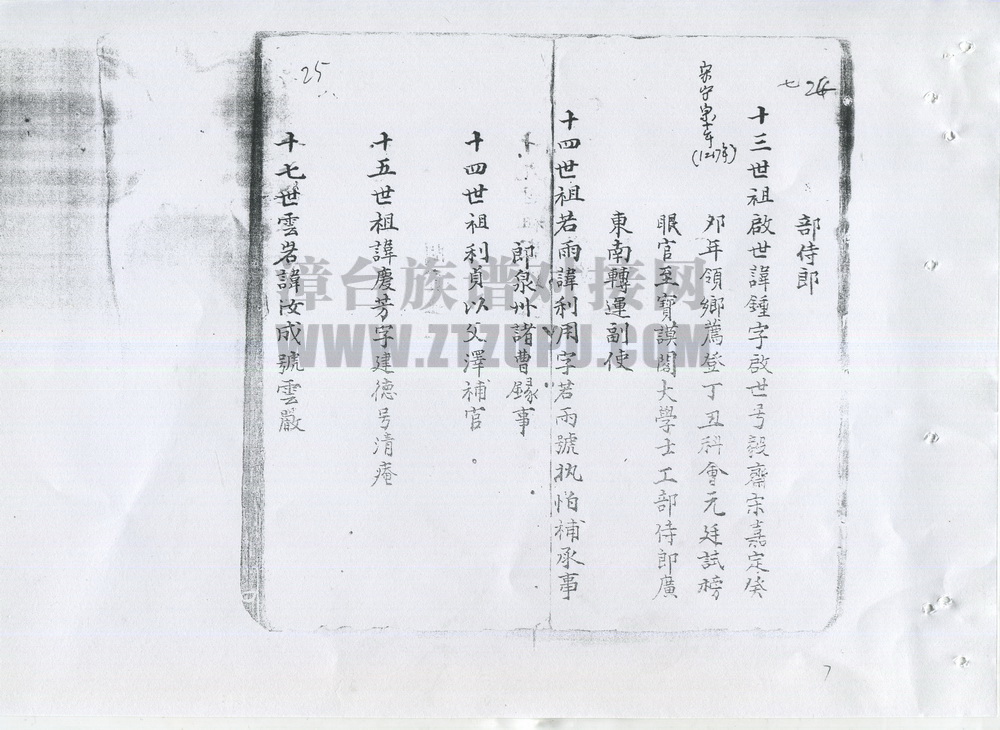 七 24
部侍郎
十三世祖啟世諱鍾字啟世号毅齋宋嘉定癸
夘年領鄉薦登丁丑科會元廷試榜
眼官至寶謨閣大學士工部侍郎廣
東南轉運副使
十四世祖若雨諱利用字若雨號执怕補承事
郎泉州諸曹錄事
十四世祖利貞以父澤補官。
十五世祖諱慶芳字建德号清庵
十七世雲岩諱汝成號雲嚴
25
(1217年)
漳台族譜对接网
WWW.ZTZUPU.COM
7